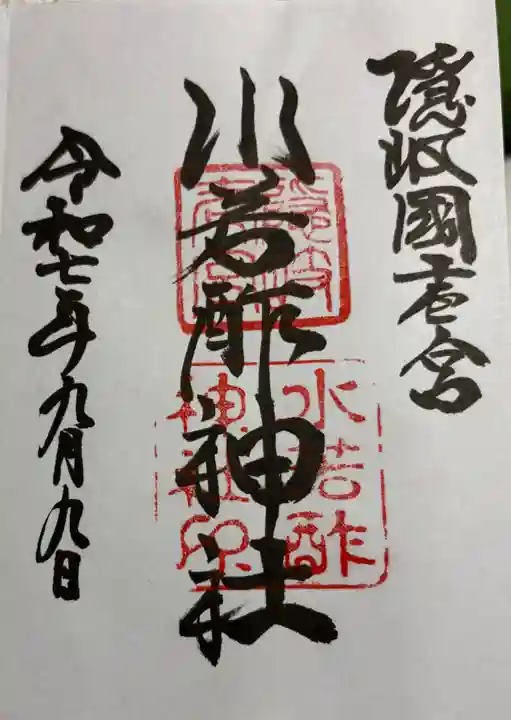 隠岐國壱宮
水若酢神社
水若酢
神社印
令和七年九月九日